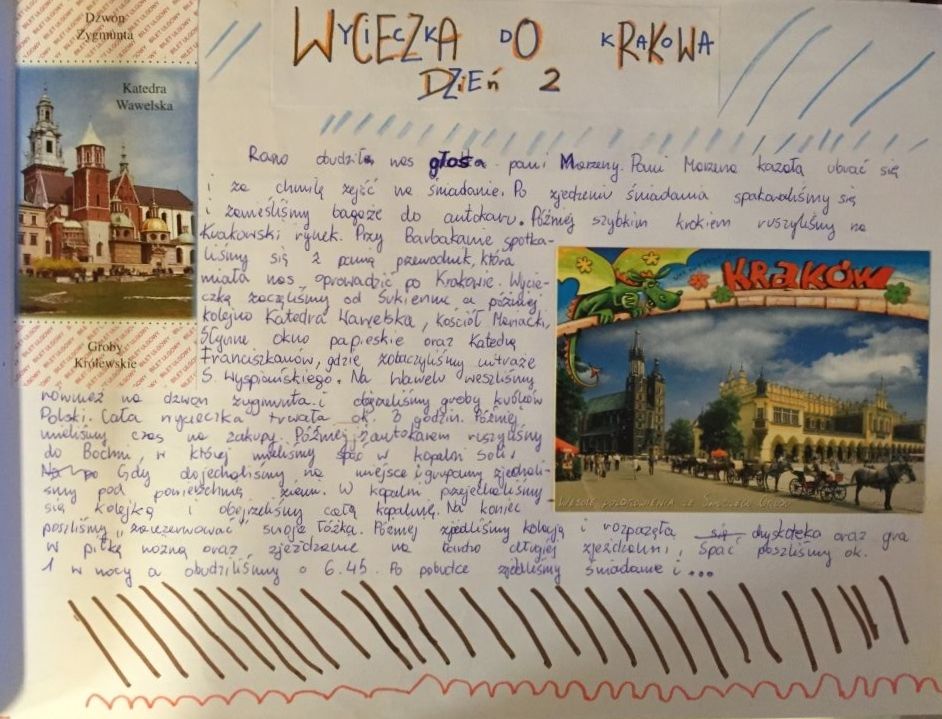 Dzwon
Zygmunta
Katedra
Wawelska
Groby
Królewskie
BILET ULGOWY
WYCIECZKA DO KRAKOWA
DZiEń 2
Rano obudziła nas głosta pani Marzeny. Pani Marzena kazała ubrać się
i za chwilę zejść na śniadanie. Po zjedzeniu śniadania spakowaliśmy się
i zanieśliśmy bagaże do autokaru. Później szybkim krokiem ruszyliśmy na
Krakowski rynek. Przy Barbakanie spotka-
liśmy się z panią przewodnik, która
miała nas oprowadzić po Krakowie. Wycie-
czkę zaczęliśmy od Sukiennic a później
kolejno Katedra Wawelska, kościół Mariacki,
Słynne okno papieskie oraz Katedrę
Franciszkanów, gdzie zobaczyliśmy witraże
S. Wyspiańskiego. Na Wawelu weszliśmy
również na dzwon zygmunta i obejrzeliśmy groby królów
Polski. Cała wycieczka trwała ok. 3 godzin. Później
mieliśmy czas na zakupy. Później zautokarem ruszyliśmy
do Bochni, w której mieliśmy spać w kopalni soli.
Gdy dojechaliśmy na miejsce i grupami zjechali-
śmy pod powierzchnię ziemi. W kopalni przejechaliśmy
się kolejką i obejrzeliśmy całą kopalnię. Na koniec
poszliśmy "zarezerwować" swoje łóżka. Później zjedliśmy kolację i rozpoczęła się dyskoteka oraz gra
w piłkę nożną oraz zjeżdżanie na bardzo długiej zjeżdżalni. Spać poszliśmy ok.
1 w nocy a obudziliśmy o 6.45. Po pobudce zjedliśmy śniadanie i ...
KRAKÓW